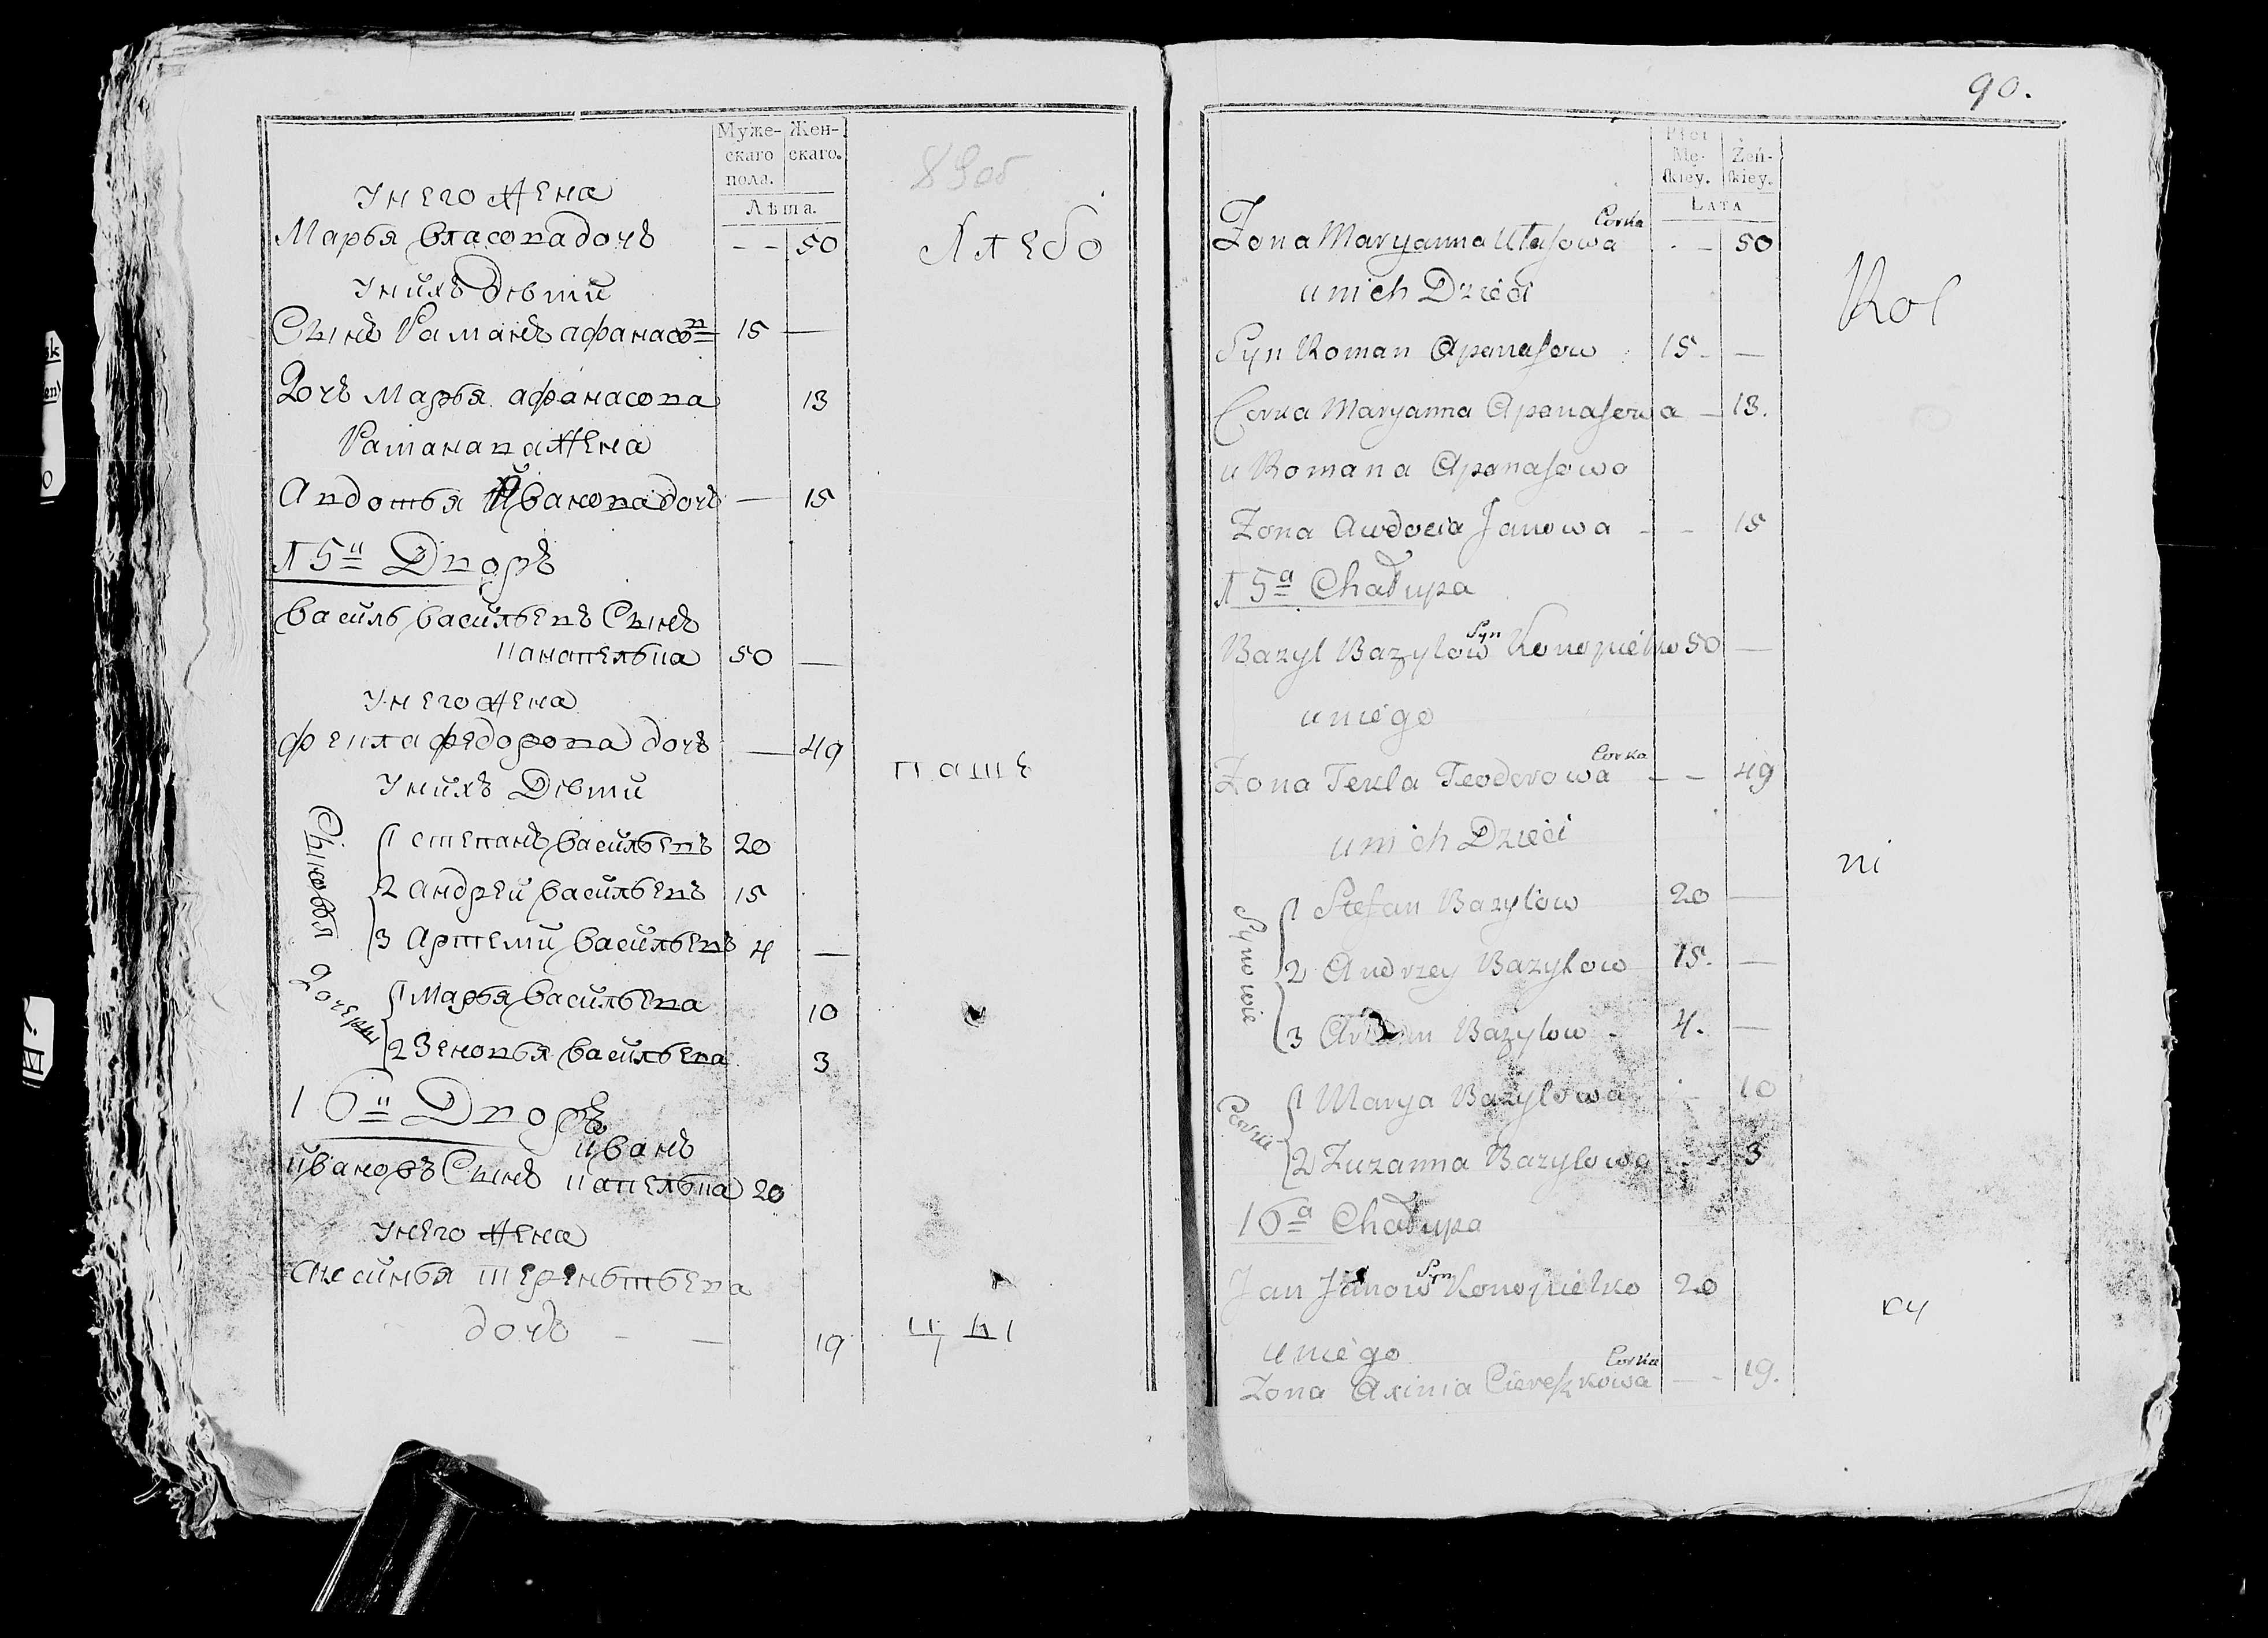 Муже-
скаго
пола.
Жен-
скаго.
Лѣта.
89об
У него жена
Марья власова дочь
- - 50
Хлебо
У нихъ Дѣти
Сынъ Раманъ афанасов
15 —
Дочь Марья афанасова
13
Рамана жена
Авдотья Иванова дочь — 15
15й Дворъ
Василь васильевъ Сынъ
канапелька 50 —
У него жена
фекла федорова дочь — 49
паше
У нихъ Дѣти
Сыновья
1 степанъ васильевъ 20
2 андрей васильевъ 15
3 Артеми васильевъ 4 —
Дочери
1 Марья васильева 10
2 Зеновья васильева 3
16й Дворъ
иванъ
ивановъ Сынъ канапелька 20
У него жена
аксинья терентьева
дочь - — 19
90.
Płci
Mę-
skiey.
Żeń-
skiey.
Lata
Corka
Zona Maryanna Ułasowa - — 50
u nich Dzieci
Rol
Syn Roman Apanasow 15 - —
Corka Maryanna Apanasowa — 13.
u Romana Apanasowa
Zona Awdocia Janowa - - 15
15a Chałupa
Syn
Bazyl Bazylow Konopielko 50 —
u niego
Corka
Zona Tekla Teodorowa - - 49
u nich Dzieci
ni
Synowie
1 Stefan Bazylow 20 —
2 Andrzey Bazylow 15. —
3 Artem Bazylow 4. —
Corki
1 Marya Bazylowa - - 10
2 Zuzanna Bazylowa - - 3
16a Chałupa
Syn
Jan Janow Konopielko 20
cy
u niego
Corka
Zona Axinia Cereszkowa — - 19.